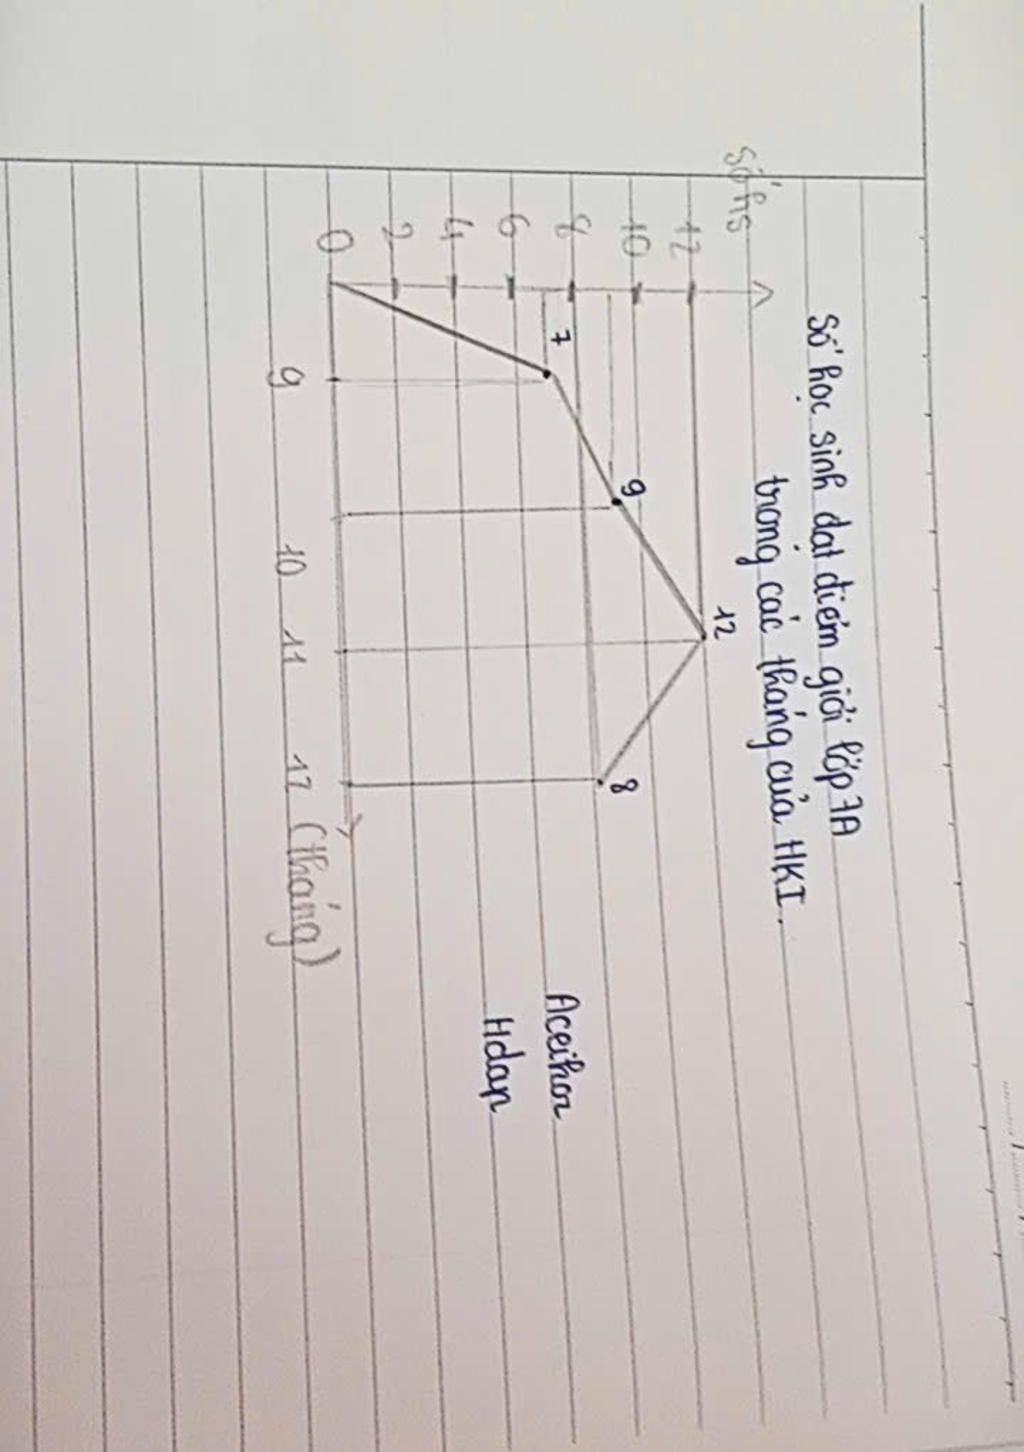 Số học sinh đạt điểm giỏi lớp 7A
trong các tháng của HKI.
Số hs
12
10
8
6
4
2
0
7
9
12
8
9
10
11
12 (tháng)